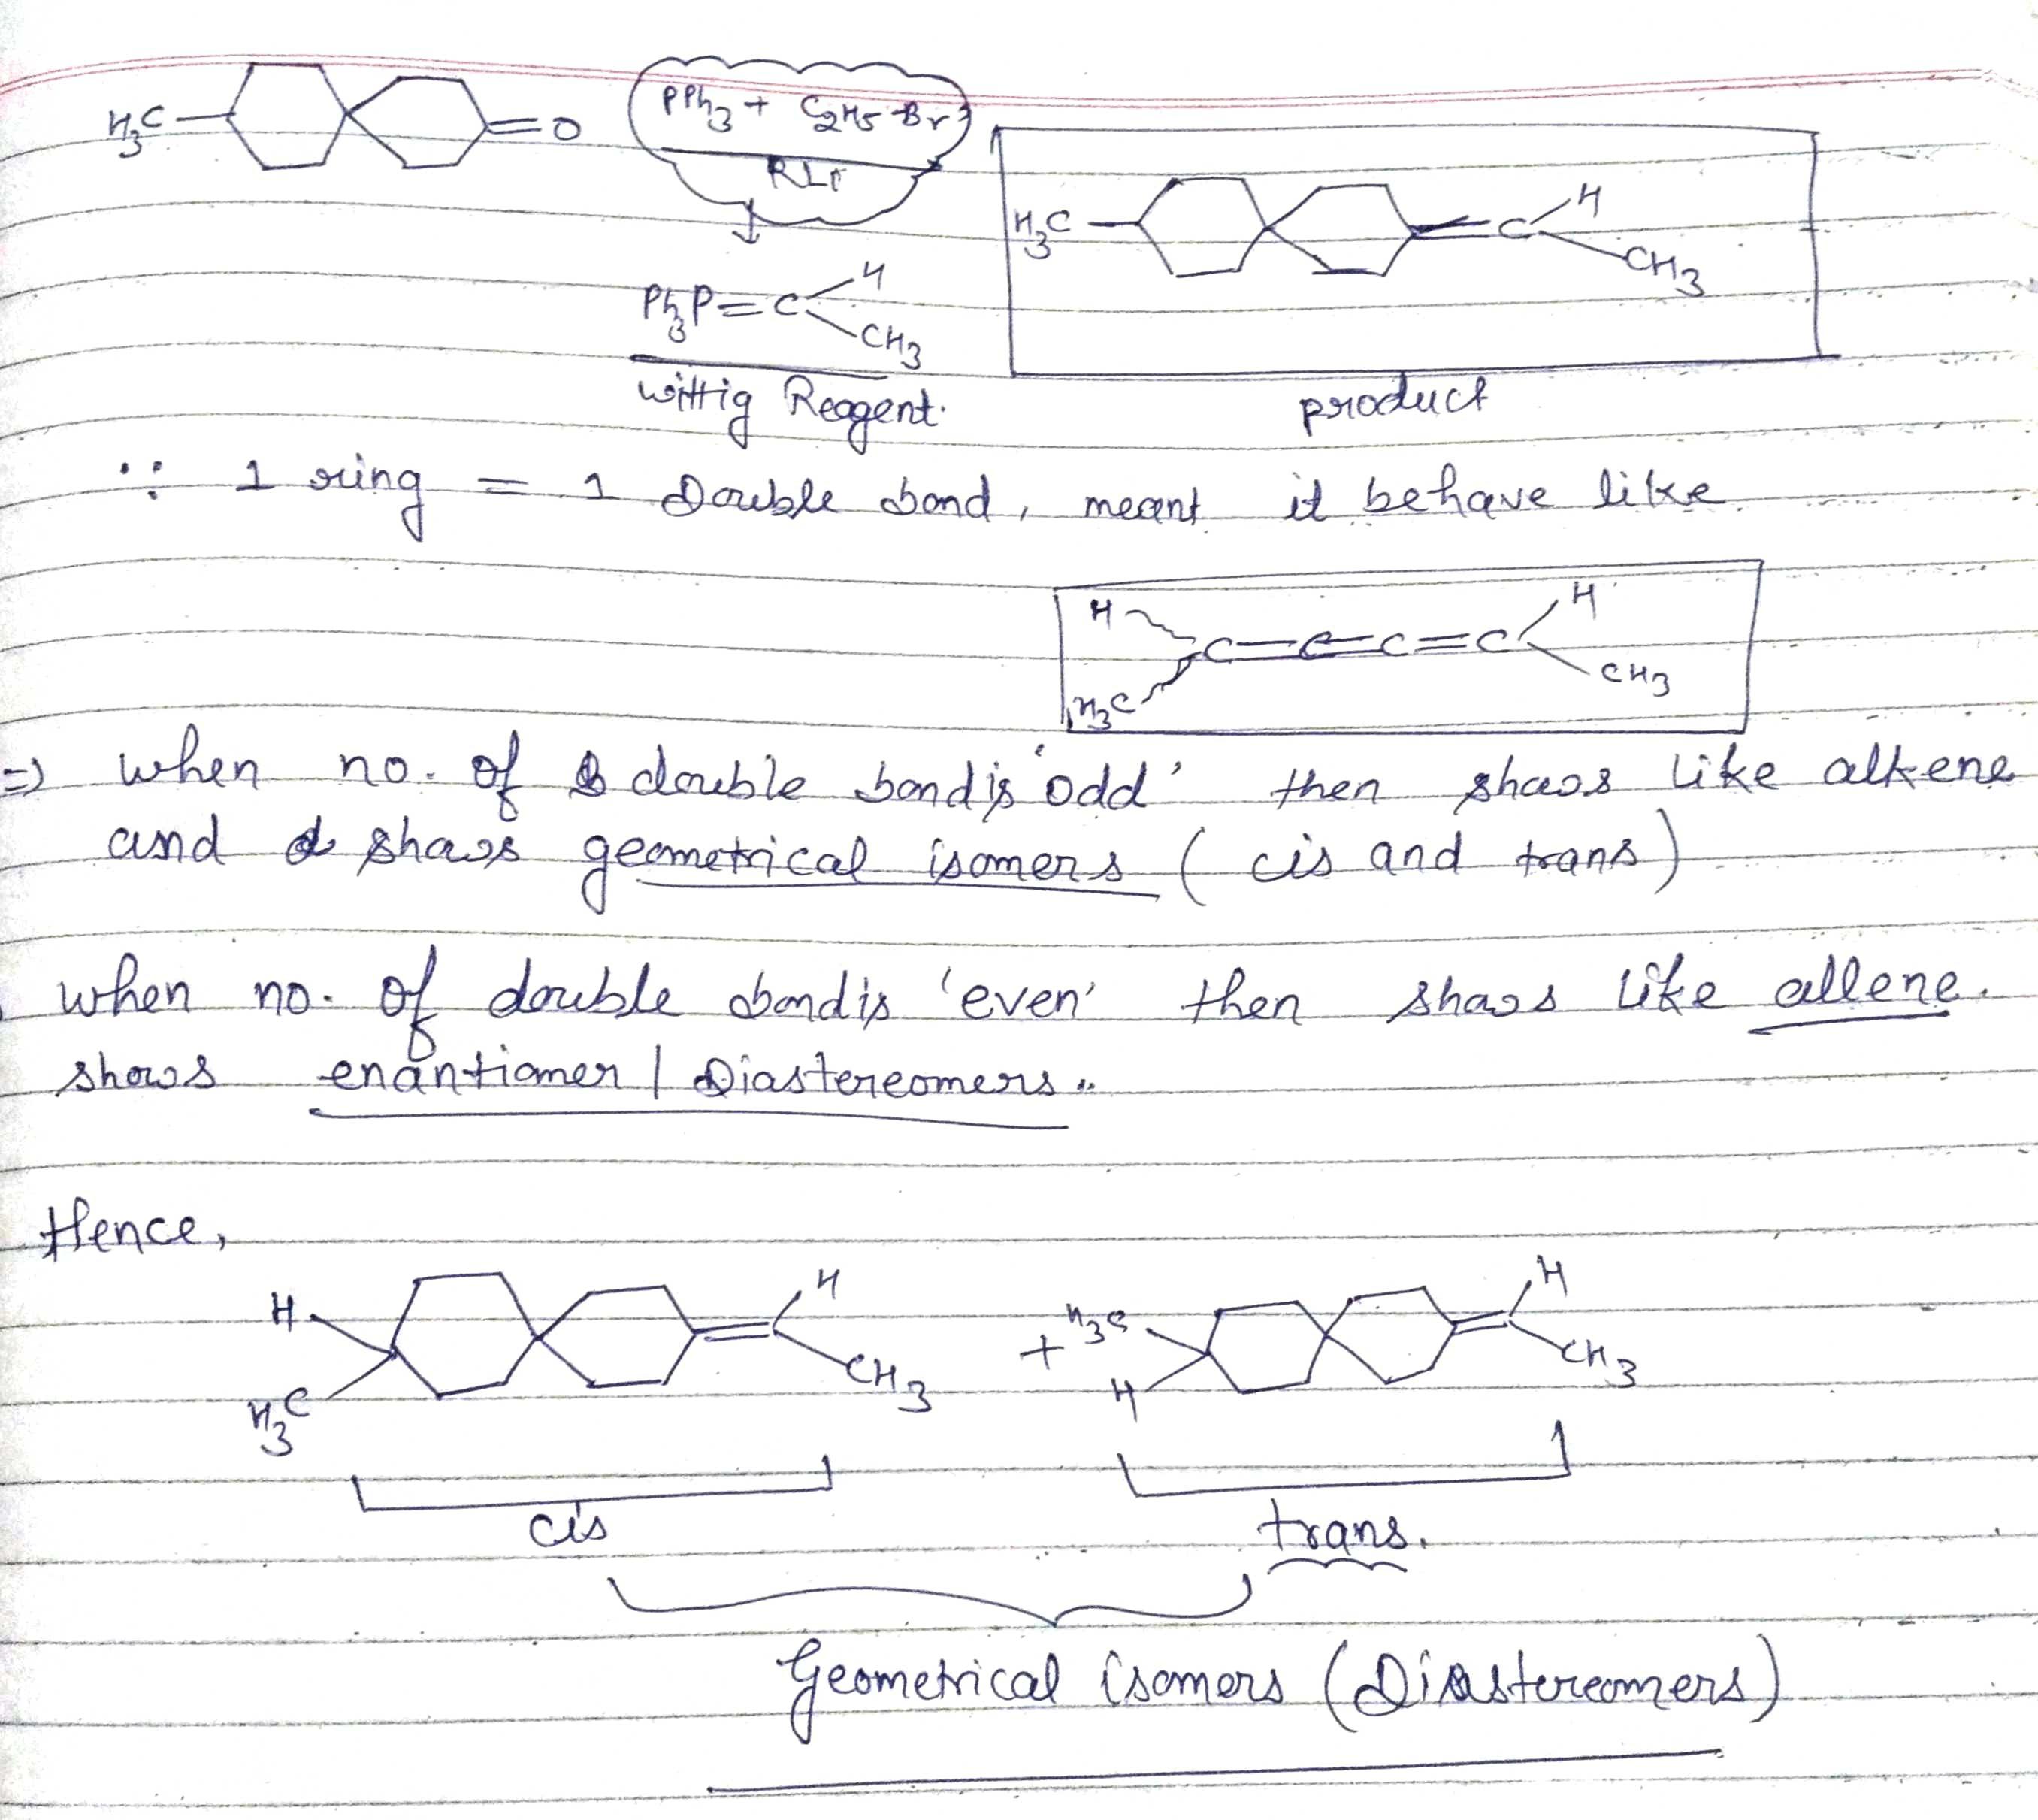 H3C =O PPh3 + C2H5-Br
RLi
H3C =C H CH3
Ph3P=C H CH3
Wittig Reagent.
product
∵ 1 ring = 1 Double bond, meant it behave like
H H3C C=C=C=C H CH3
=> when no. of double bond is 'odd' then shows like alkene
and shows geometrical isomers ( cis and trans)
when no. of double bond is 'even' then shows like allene.
shows enantiomer / Diastereomers.
Hence,
H H3C H CH3 + H3C H H CH3
cis trans.
Geometrical isomers (Diastereomers)